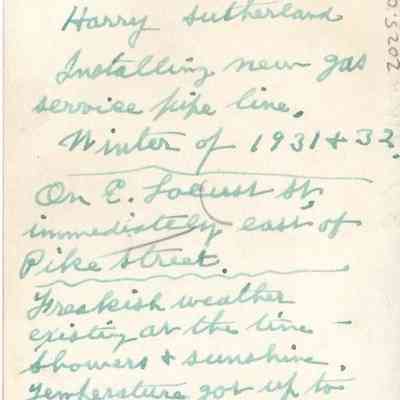 Harry Sutherland
Installing new gas
service pipe line.
Winter of 1931 & 32.
On E. Locust St.
immediately east of
Pike Street.
Freakish weather
existing at the time -
showers & sunshine.
Temperature got up to